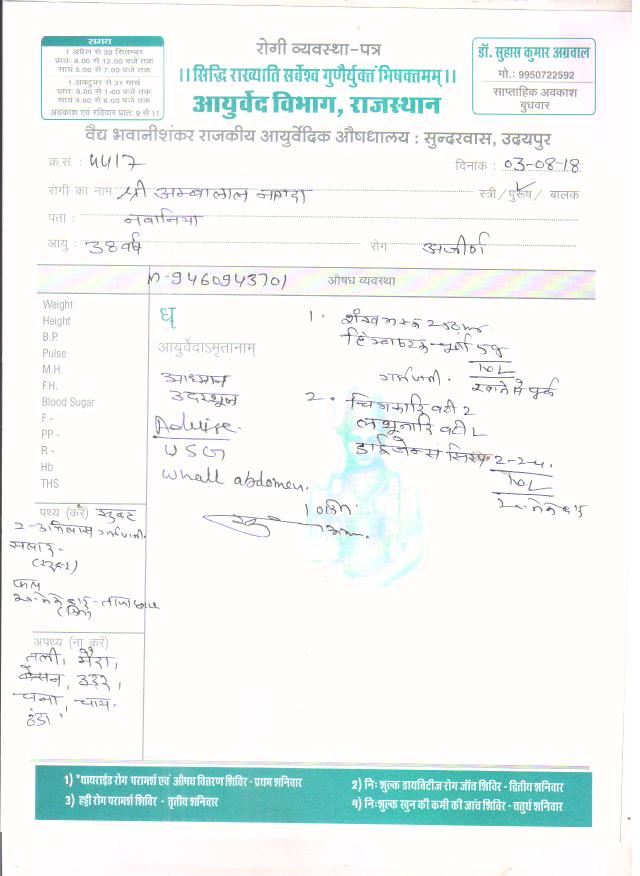 समय
1 अप्रैल से 30 सितम्बर
प्रात: 8.00 से 12.00 बजे तक
सायं 5.00 से 7.00 बजे तक
1 अक्टूबर से 31 मार्च
प्रात: 9.00 से 1.00 बजे तक
सायं 4.00 से 6.00 बजे तक
अवकाश एवं रविवार प्रात: 9 से 11
रोगी व्यवस्था-पत्र
।।सिद्धि राख्याति सर्वेश्व गुणैर्युक्तं भिषक्तमम्।।
आयुर्वेद विभाग, राजस्थान
डॉ. सुहास कुमार अग्रवाल
मो.: 9950722592
साप्ताहिक अवकाश
बुधवार
वैद्य भवानीशंकर राजकीय आयुर्वेदिक औषधालय : सुन्दरवास, उदयपुर
क्र.सं. : ५५17
दिनांक : 03-08-18
रोगी का नाम श्री अम्बालाल नागदा
स्त्री/पुरूष/ बालक
पता : नवानिया
आयु : 38 वर्ष
रोग अजीर्ण
M-9460943701
औषध व्यवस्था
Weight
Height
B.P.
Pulse
M.H.
F.H.
Blood Sugar
F -
PP -
R -
Hb
THS
आयुर्वेदाऽमृतानाम्
आध्मान
उदरशूल
Advise.
USG
Whall abdomen.
1. शंख भस्म
हिंग्वाष्टक चूर्ण 5g
गर्मपानी.
खाने से पूर्व
2. चित्रकादि वटी 2
लशुनादि वटी 2
डाईजेन्स सिरप 2-2 च.
पथ्य (करें) सुबह
2-3 गिलास गर्मपानी.
सलाद -
फल
अपथ्य (ना करें)
तली, मैदा,
बेसन, उड़द,
चना, चाय.
ठंडा
1) *थायराईड रोग परामर्श एवं औषध वितरण शिविर - प्रथम शनिवार
2) नि: शुल्क डायबिटीज रोग जाँच शिविर - द्वितीय शनिवार
3) हड्डी रोग परामर्श शिविर - तृतीय शनिवार
4) नि:शुल्क खुन की कमी की जांच शिविर - चतुर्थ शनिवार